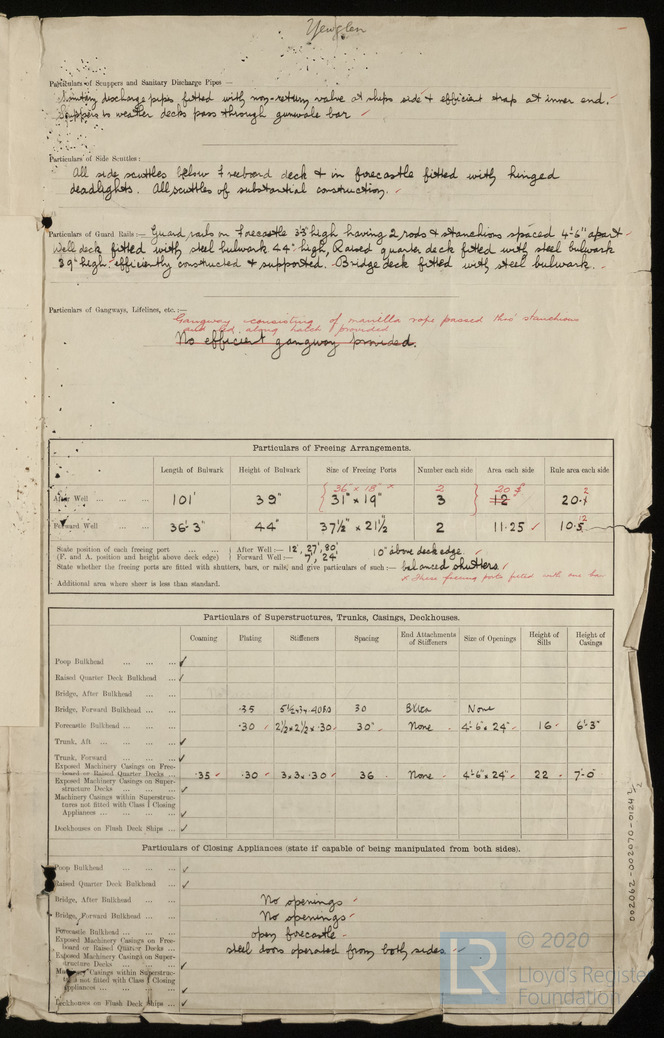 Yewglen
Particulars of Scuppers and Sanitary Discharge Pipes —
Sanitary discharge pipes fitted with non-return valve at ships side & efficient trap at inner end.
Scuppers to weather decks pass through gunwale bar
Particulars of Side Scuttles:
All side scuttles below Freeboard deck & in forecastle fitted with hinged
deadlights. All scuttles of substantial construction.
Particulars of Guard Rails:— Guard rails on Forecastle 33" high having 2 rods & stanchions spaced 4'-6" apart
Well deck fitted with steel bulwark 44" high, Raised quarter deck fitted with steel bulwark
39" high efficiently constructed & supported. Bridge deck fitted with steel bulwark.
Particulars of Gangways, Lifelines, etc.:—
Gangway consisting of manilla rope passed thro' stanchions
along hatch provided
No efficient gangway provided.
Particulars of Freeing Arrangements.
Length of Bulwark Height of Bulwark Size of Freeing Ports Number each side Area each side Rule area each side
36" x 18" x 2 20 2
After Well ... ... ... 101' 39" 31" x 19" 3 12 20.1
Forward Well ... ... 36'-3" 44" 37½" x 21½" 2 11.25 10.5 2
State position of each freeing port ... ... After Well:— 12', 27', 80' 10" above deck edge
(F. and A. position and height above deck edge) Forward Well:— 7', 24'
State whether the freeing ports are fitted with shutters, bars, or rails, and give particulars of such:— balanced shutters
x These freeing ports fitted with one bar
Additional area where sheer is less than standard.
Particulars of Superstructures, Trunks, Casings, Deckhouses.
Coaming Plating Stiffeners Spacing End Attachments of Stiffeners Size of Openings Height of Sills Height of Casings
Poop Bulkhead ... ... ...
Raised Quarter Deck Bulkhead ...
Bridge, After Bulkhead ... ...
Bridge, Forward Bulkhead ... ... .35 30 None
Forecastle Bulkhead ... ... ... .30 2½ x 2½ x .30 30" None 4'-6" x 24" 16 6'-3"
Trunk, Aft ... ... ... ...
Trunk, Forward ... ... ...
Exposed Machinery Casings on Free-
board or Raised Quarter Decks ... .35 .30 3 x 3 x .30 36 None 4'-6" x 24" 22 7'-0"
Exposed Machinery Casings on Super-
structure Decks ... ... ...
Machinery Casings within Superstruc-
tures not fitted with Class I Closing
Appliances ... ... ... ...
Deckhouses on Flush Deck Ships ...
Particulars of Closing Appliances (state if capable of being manipulated from both sides).
Poop Bulkhead ... ... ...
Raised Quarter Deck Bulkhead ...
Bridge, After Bulkhead ... ... No openings
Bridge, Forward Bulkhead ... ... No openings
Forecastle Bulkhead ... ... ... open forecastle
Exposed Machinery Casings on Free-
board or Raised Quarter Decks ... steel doors operated from both sides
Exposed Machinery Casings on Super-
structure Decks ... ... ...
Machinery Casings within Superstruc-
tures not fitted with Class I Closing
Appliances ... ... ... ...
Deckhouses on Flush Deck Ships ...
002062-002070-0124 2/2
© 2020
LR
Lloyd's Register
Foundation